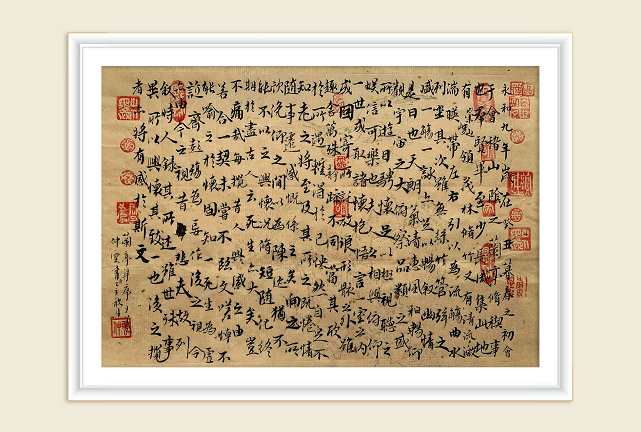 永和九年歲在癸丑暮春之初會
于會稽山陰之蘭亭修稧事
也羣賢畢至少長咸集此地
有崇山峻領茂林脩竹又有清流激
湍暎帶左右引以為流觴曲水
列坐其次雖無絲竹管弦之
盛一觴一詠亦足以暢敘幽情
是日也天朗氣清惠風和暢仰
觀宇宙之大俯察品類之盛
所以遊目騁懷足以極視聽之
娛信可樂也夫人之相與俯仰
一世或取諸懷抱悟言一室之內
或因寄所託放浪形骸之外雖
趣舍萬殊靜躁不同當其欣
於所遇暫得於己快然自足不
知老之將至及其所之既惓情
隨事遷感慨係之矣向之所
欣俛仰之間以為陳迹猶不
能不以之興懷況脩短隨化終
期於盡古人云死生亦大矣豈
不痛哉每攬昔人興感之由
若合一契未嘗不臨文嗟悼不
能喻之於懷固知一死生為虛
誕齊彭殤為妄作後之視今
亦由今之視昔悲夫故列
敘時人錄其所述雖世殊事
異所以興懷其致一也後之攬
者亦將有感於斯文